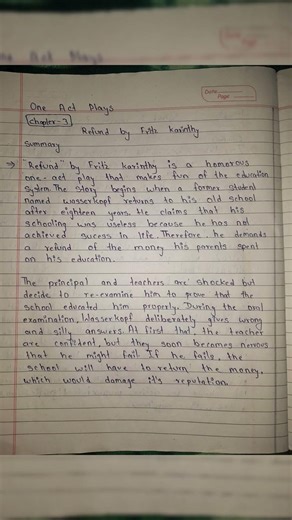 Date
Page
One Act Plays
Chapter-3
Refund by Fritz Karinthy
Summary
→ "Refund" by Fritz Karinthy is a homorous
one-act play that makes fun of the education
system. The story begins when a former student
named wasserkopf returns to his old school
after eighteen years. He claims that his
schooling was useless because he has not
achieved sucess in life. Therefore, he demands
a refund of the money his parents spent
on his education.
The principal and teachers are shocked but
decide to re-examine him to prove that the
school educated him properly. During the oral
examination, Wasserkopf deliberately gives wrong
and silly answers. At first that, the teacher
are confident, but they soon becomes nervous
that he might fail. If he fails, the
school will have to return the money,
which would damage it's reputation.